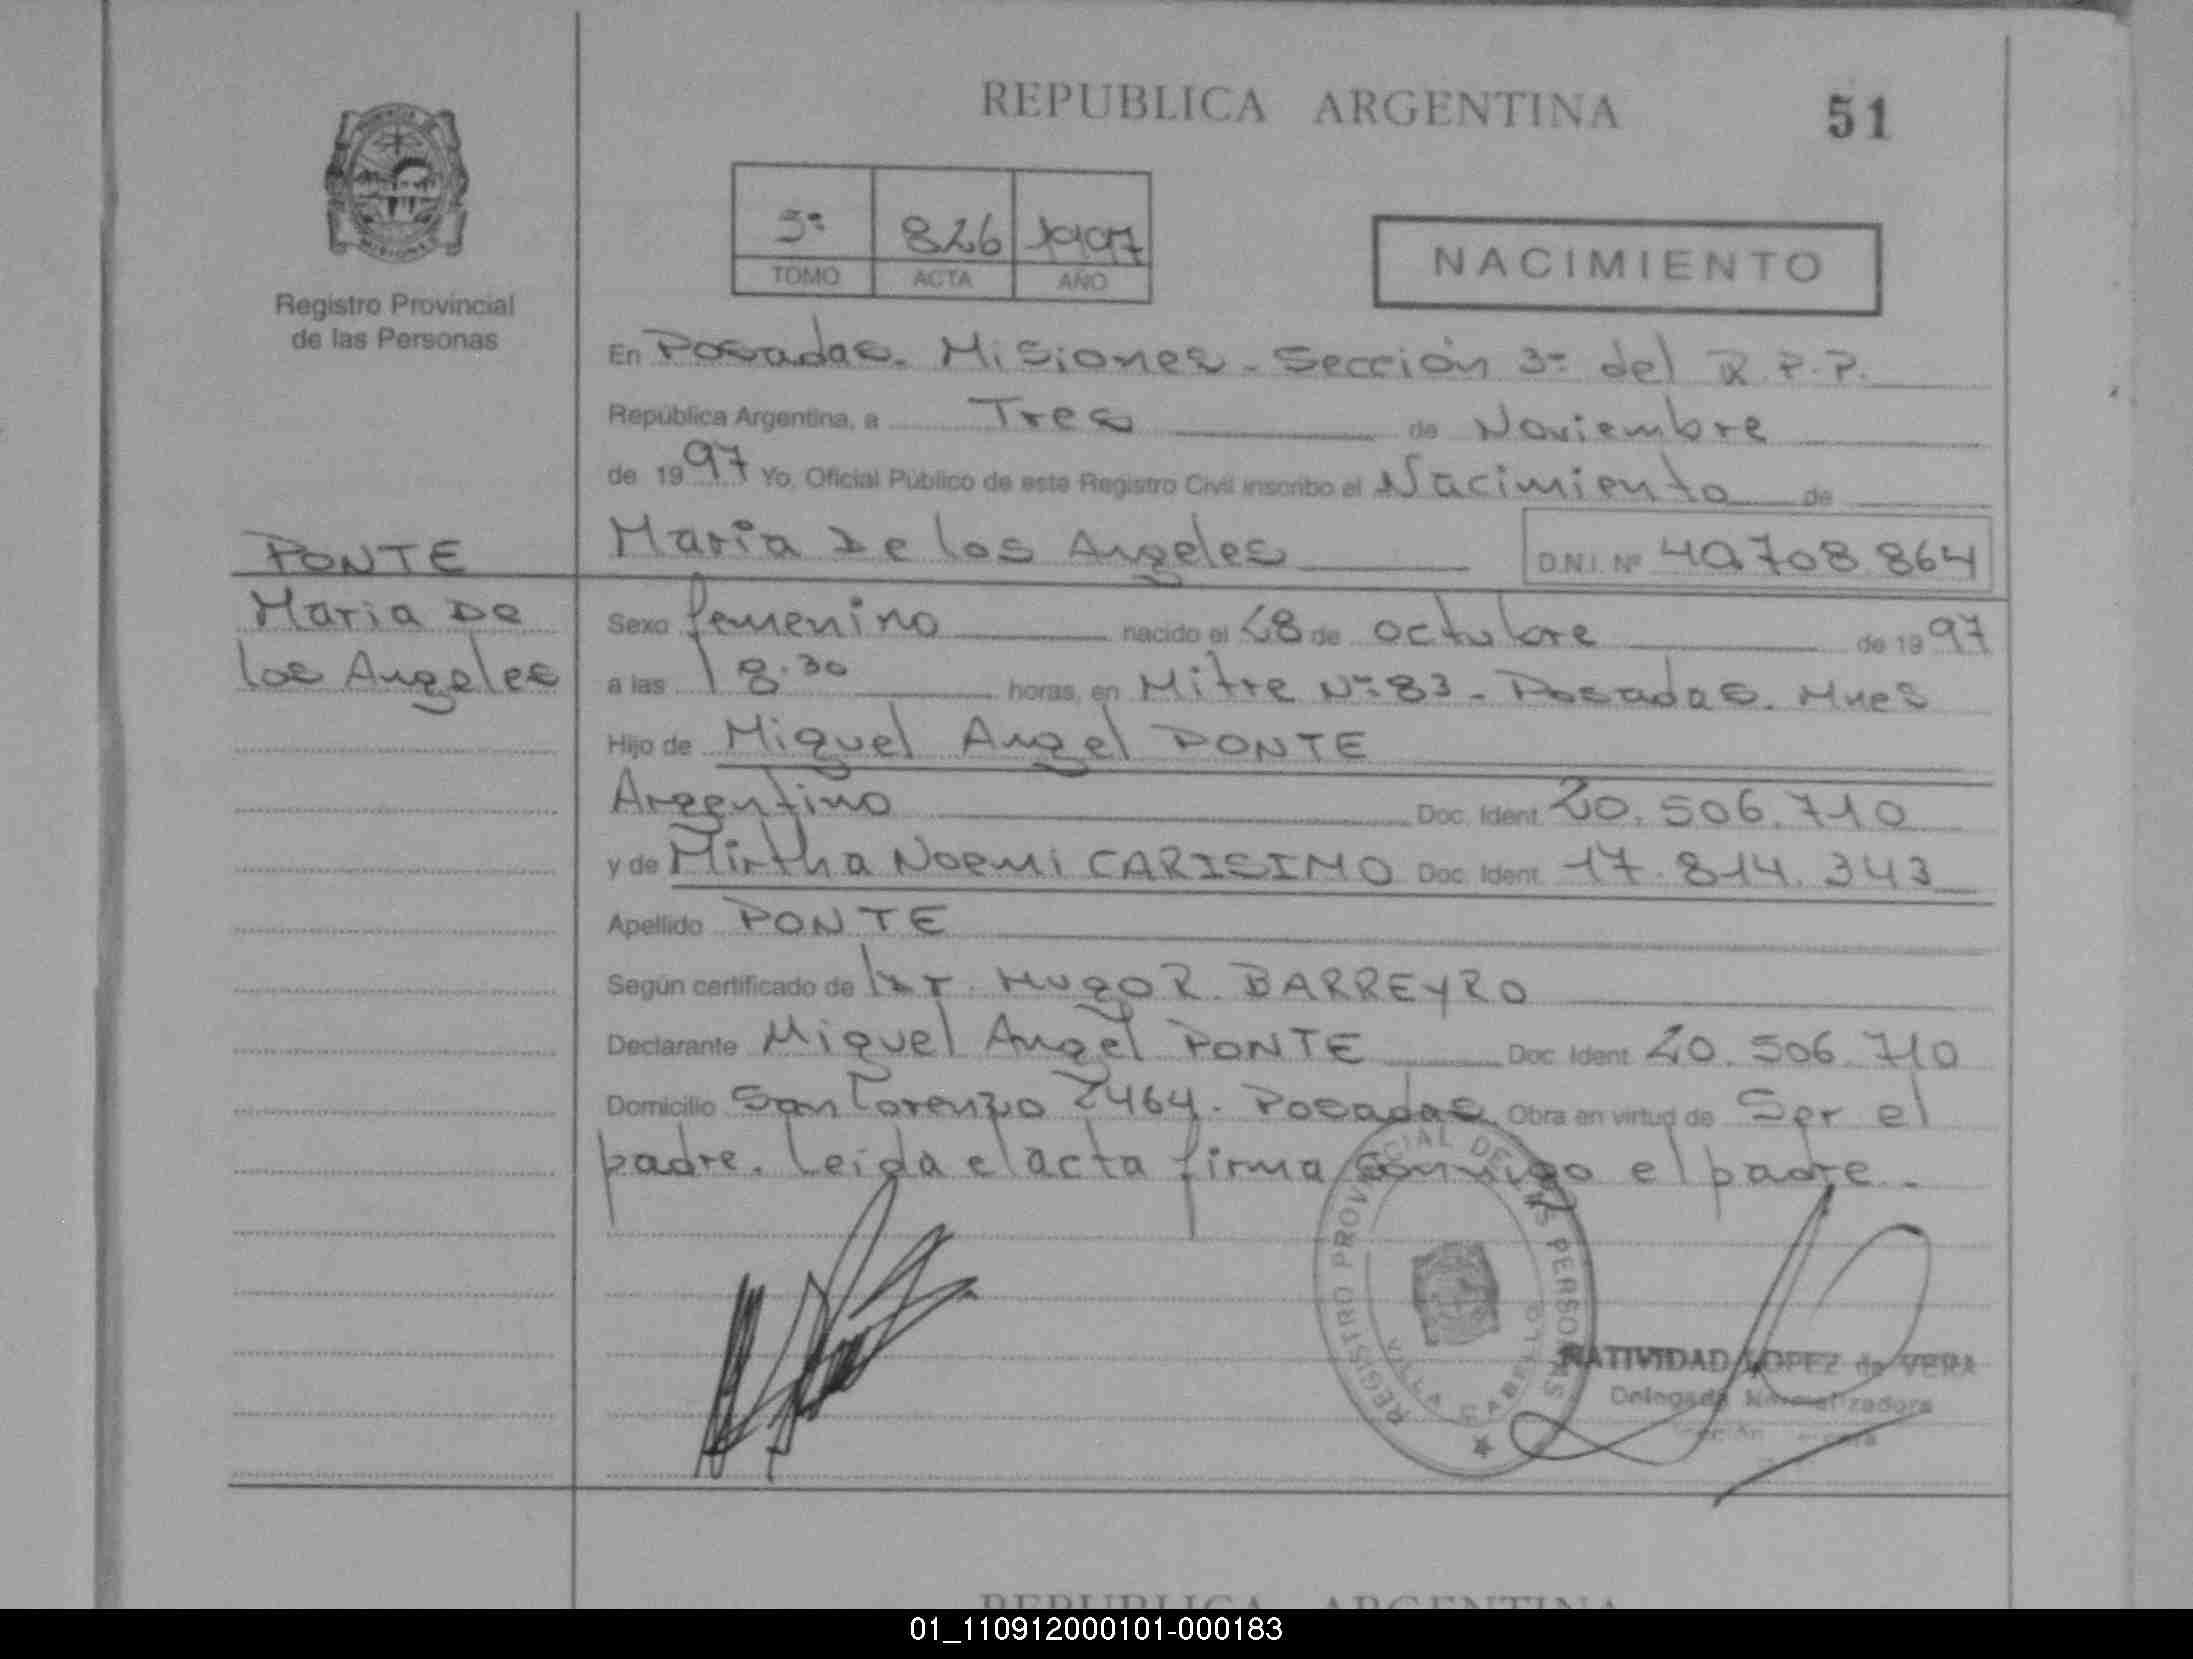 REPUBLICA ARGENTINA
51
3º 826 1997
TOMO ACTA AÑO
NACIMIENTO
Registro Provincial
de las Personas
En Posadas. Misiones - Sección 3ª del R.P.P.
República Argentina, a Tres de Noviembre
de 1997 Yo, Oficial Público de este Registro Civil inscribo el Nacimiento de
Maria De los Angeles D.N.I. Nº 40.708.864
PONTE
Maria De
los Angeles
Sexo femenino nacido el 28 de octubre de 1997
a las 18.30 horas, en Mitre Nº 83 - Posadas. Mnes
Hijo de Miguel Angel PONTE
Argentino Doc. Ident. 20.506.710
y de Mirtha Noemi CARISIMO Doc. Ident. 17.814.343
Apellido PONTE
Según certificado de Dr. Hugo R. BARREYRO
Declarante Miguel Angel PONTE Doc. Ident. 20.506.710
Domicilio San Lorenzo 2464. Posadas Obra en virtud de Ser el
padre. Leida el acta firma conmigo el padre.-
REGISTRO PROVINCIAL DE LAS PERSONAS
VILLA CABELLO
NATIVIDAD LOPEZ de VERA
Delegada Normalizadora
REPUBLICA ARGENTINA
01_110912000101-000183